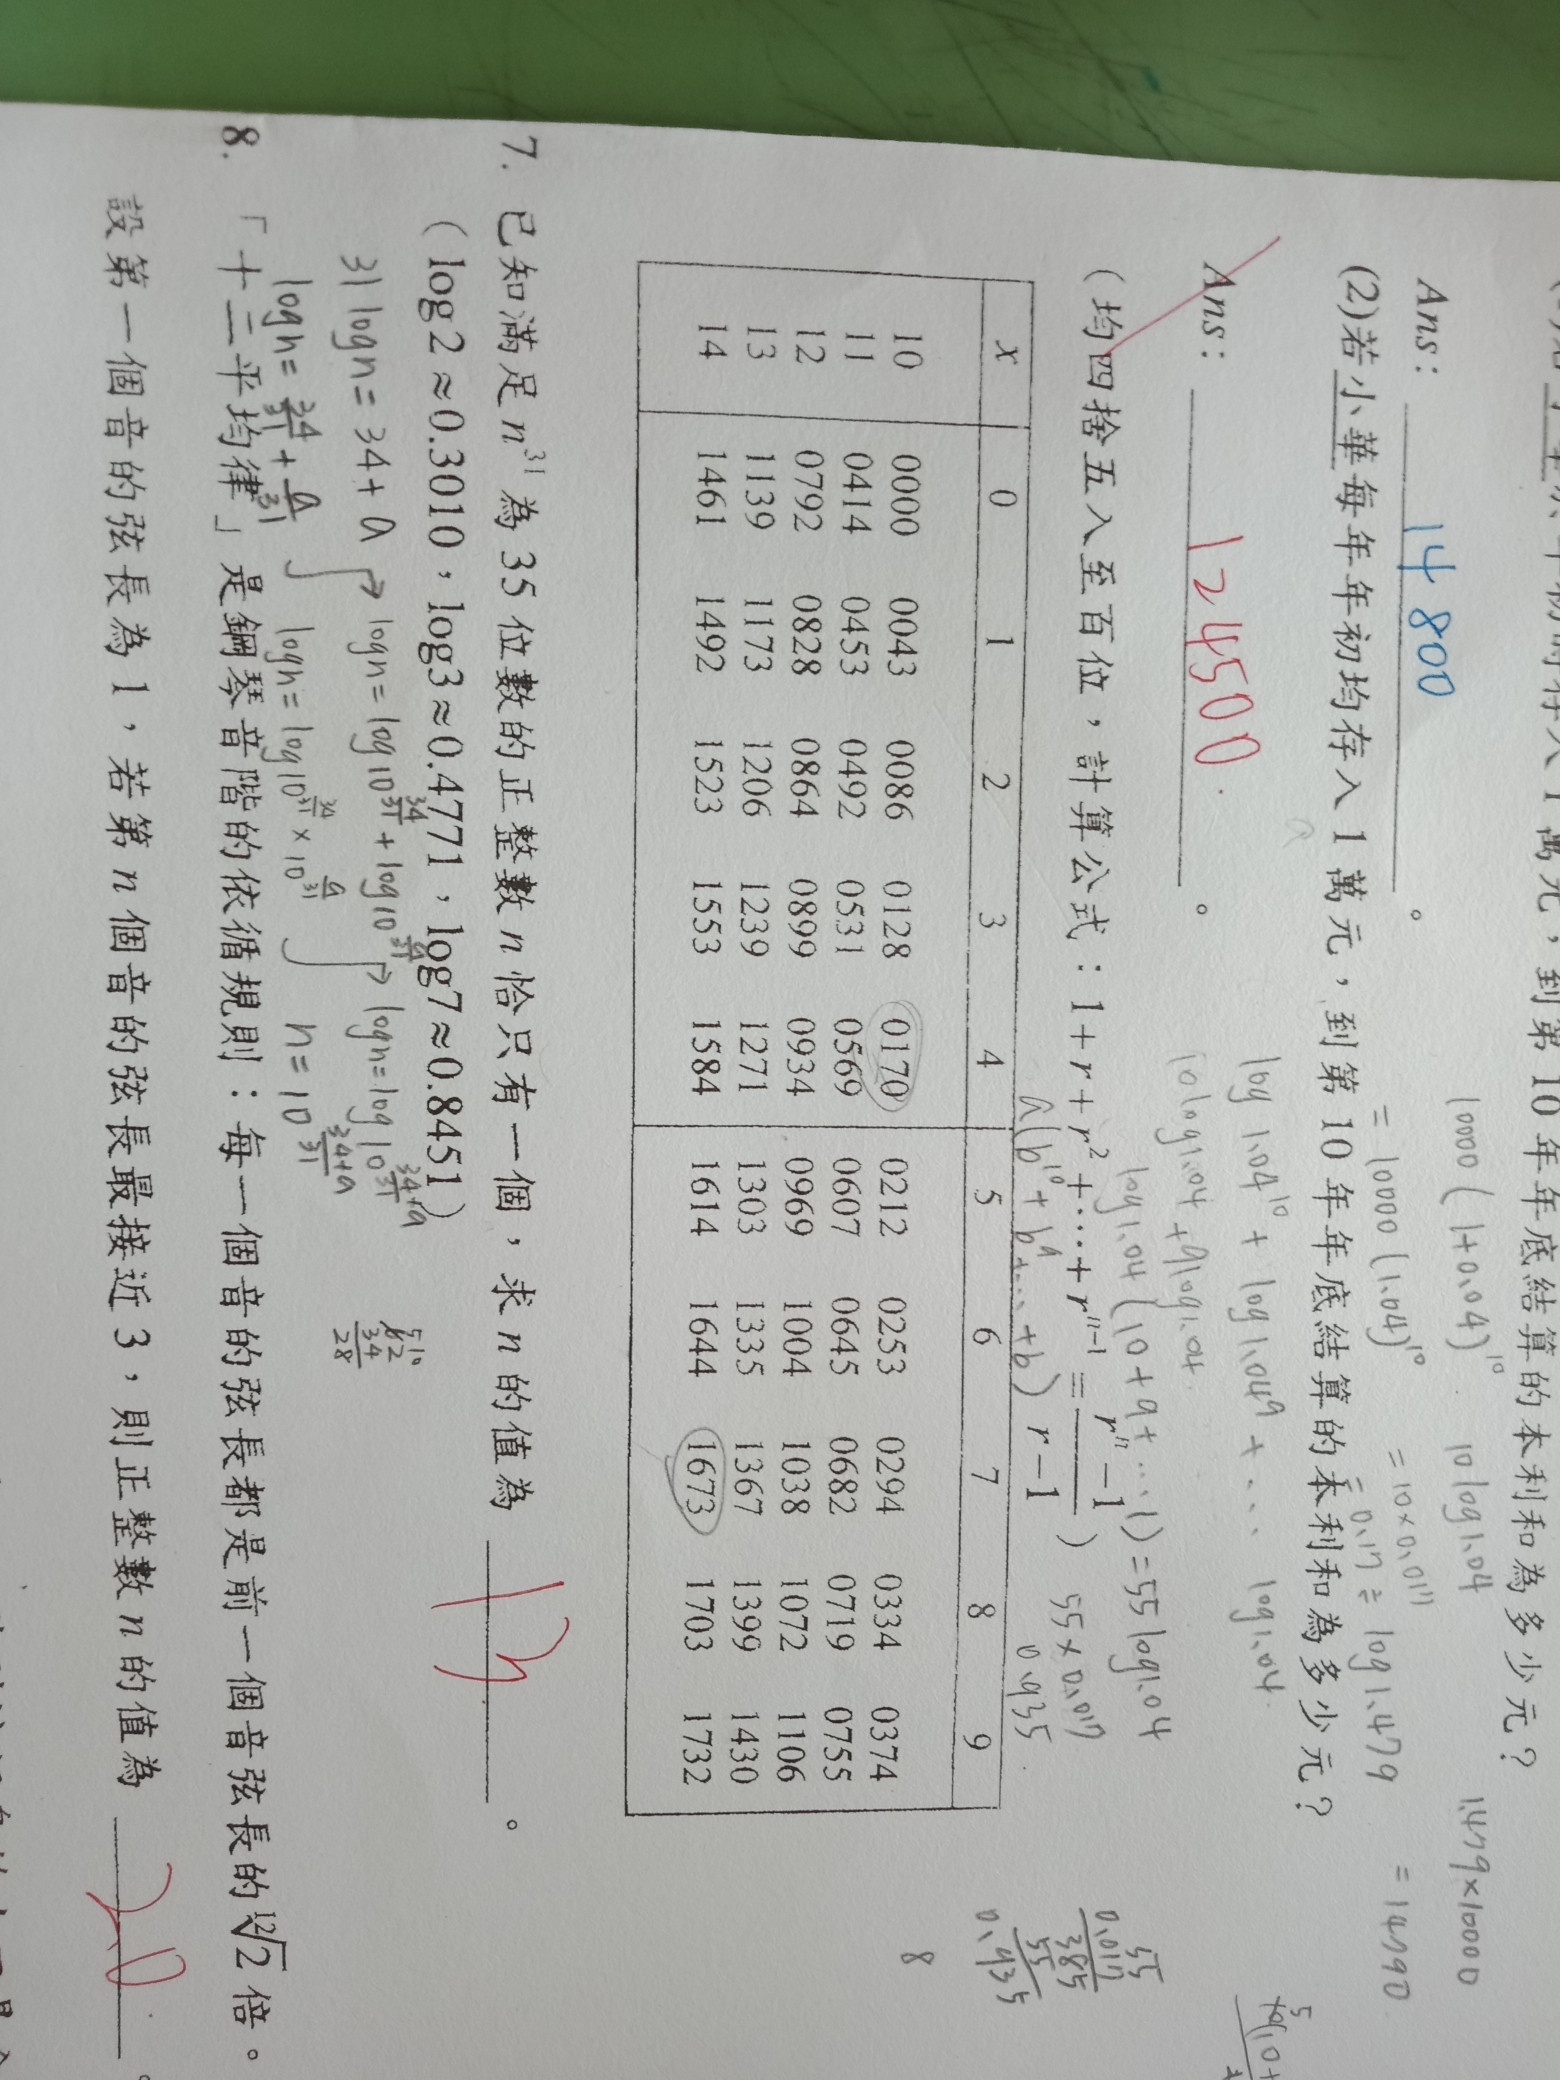 1萬元，到第10年年底結算的本利和為多少元？
10000(1+0.04)¹⁰ 10log1.04 1.479×10000
Ans： 14800 。
=10000(1.04)¹⁰ =10×0.017 =14790
=0.17≒log1.479
(2)若小華每年年初均存入1萬元，到第10年年底結算的本利和為多少元？
log1.04¹⁰+log1.04⁹+... log1.04
Ans： 124500 。
10log1.04+9log1.04
log1.04(10+9+...1)=55log1.04
(均四捨五入至百位，計算公式：1+r+r²+⋯+rⁿ⁻¹=(rⁿ−1)/(r−1))
55×0.017
0.935
a(b¹⁰+b⁹+...+b)
55
0.017
385
55
0.935
8
x 0 1 2 3 4 5 6 7 8 9
10 0000 0043 0086 0128 0170 0212 0253 0294 0334 0374
11 0414 0453 0492 0531 0569 0607 0645 0682 0719 0755
12 0792 0828 0864 0899 0934 0969 1004 1038 1072 1106
13 1139 1173 1206 1239 1271 1303 1335 1367 1399 1430
14 1461 1492 1523 1553 1584 1614 1644 1673 1703 1732
7. 已知滿足n³¹為35位數的正整數n恰只有一個，求n的值為 13 。
(log2≈0.3010，log3≈0.4771，log7≈0.8451)
31logn=34+a → logn=log10^(34/31)+log10^(a/31) → logn=log10^((34+a)/31)
logn=34/31+a/31 logn=log10^(34/31)×10^(a/31) n=10^((34+a)/31)
62
34
28
8. 「十二平均律」是鋼琴音階的依循規則：每一個音的弦長都是前一個音弦長的¹²√2倍。
設第一個音的弦長為1，若第n個音的弦長最接近3，則正整數n的值為 20 。